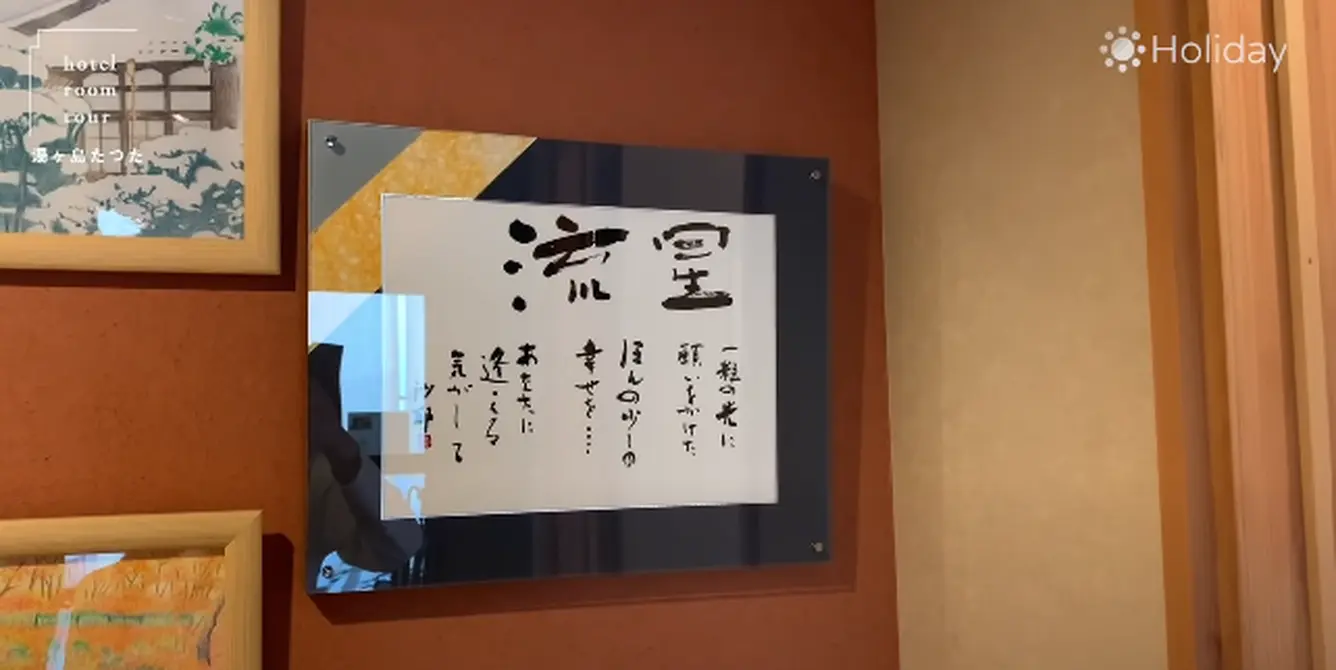 hotel
room
tour
湯ヶ島たつた
Holiday
星流
一粒の光に
願いをかけた
ほんの少しの
幸せを‥‥
あなたに
逢えくる
気がして